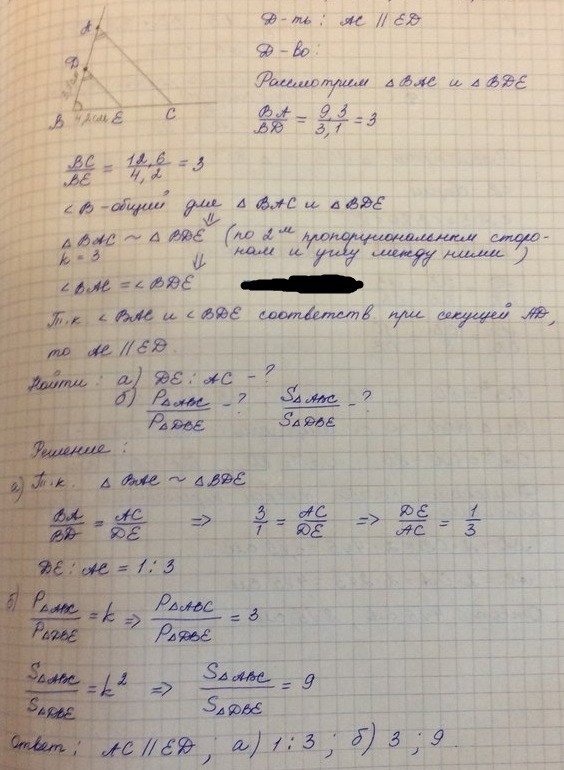 A
D
B 4,2см E C
Д-ть: AC || ED
Д-во:
Рассмотрим △BAC и △BDE
BA/BD = 9,3/3,1 = 3
BC/BE = 12,6/4,2 = 3
∠B - общий для △BAC и △BDE
⇓
△BAC ~ △BDE (по 2м пропорциональным сторо-
k = 3 нам и углу между ними)
⇓
∠BAC = ∠BDE
Т.к. ∠BAC и ∠BDE соответств. при секущей AD,
то AC || ED.
Найти: а) DE : AC - ?
б) P△ABC/P△DBE - ? S△ABC/S△DBE - ?
Решение:
а) Т.к. △BAC ~ △BDE
BA/BD = AC/DE => 3/1 = AC/DE => DE/AC = 1/3
DE : AC = 1 : 3
б) P△ABC/P△DBE = k => P△ABC/P△DBE = 3
S△ABC/S△DBE = k² => S△ABC/S△DBE = 9
Ответ: AC || ED; а) 1 : 3; б) 3; 9